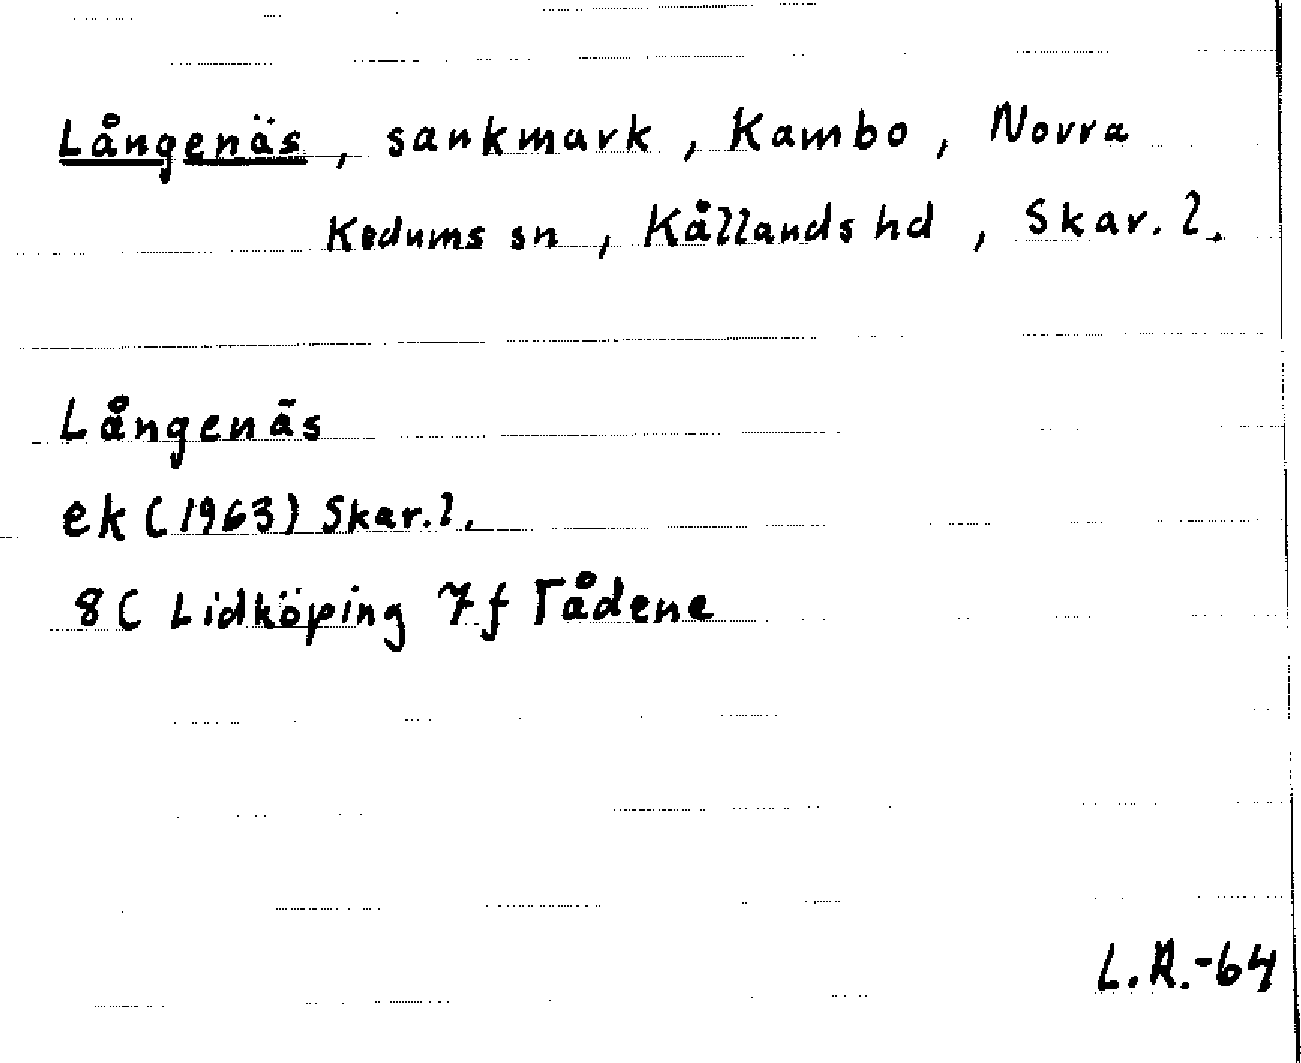 Långenäs, sankmark, Kambo, Norra
Kedums sn, Kållands hd, Skar. l.
Långenäs
ek (1963) Skar. l.
8C Lidköping 7f Tådene
L.R.-64